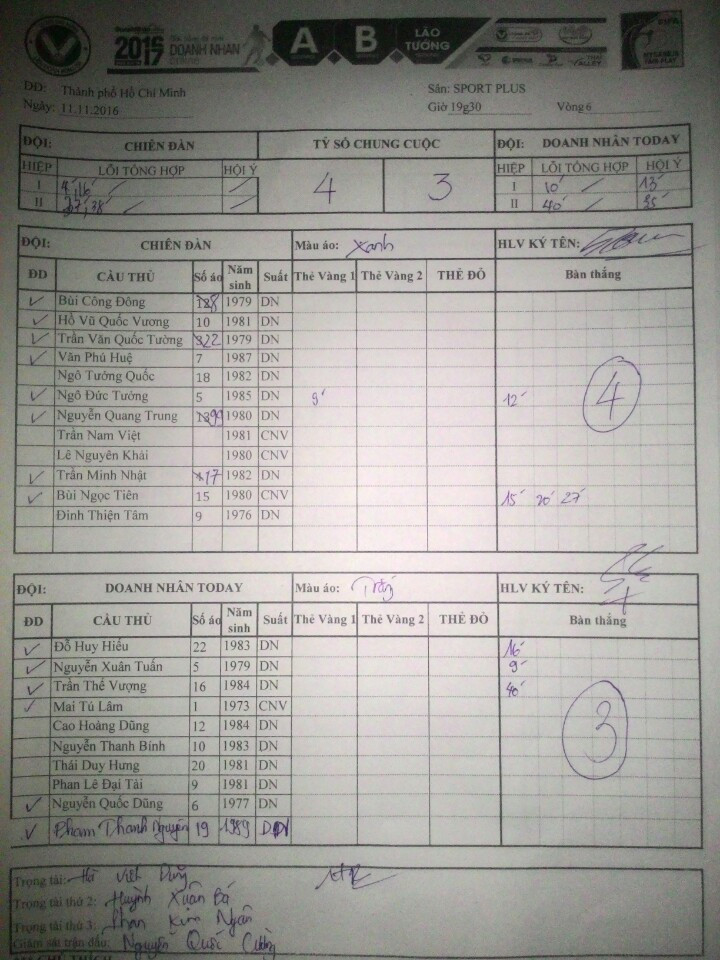 2016 2017 DOANH NHÂN A B LÃO TƯỚNG
DD: Thành phố Hồ Chí Minh Sân: SPORT PLUS
Ngày: 11.11.2016 Giờ 19g30 Vòng 6
ĐỘI: CHIẾN ĐÀN TỶ SỐ CHUNG CUỘC ĐỘI: DOANH NHÂN TODAY
HIỆP LỖI TỔNG HỢP HỘI Ý 4 3 HIỆP LỖI TỔNG HỢP HỘI Ý
I I 10' 13'
II II 40' 35'
ĐỘI: CHIẾN ĐÀN Màu áo: Xanh HLV KÝ TÊN:
ĐD CẦU THỦ Số áo Năm sinh Suất Thẻ Vàng 1 Thẻ Vàng 2 THẺ ĐỎ Bàn thắng
Bùi Công Đông 8 1979 DN
Hồ Vũ Quốc Vương 10 1981 DN
Trần Văn Quốc Tường 22 1979 DN
Văn Phú Huệ 7 1987 DN
Ngô Tướng Quốc 18 1982 DN
Ngô Đức Tưởng 5 1985 DN 9' 12' 4
Nguyễn Quang Trung 99 1980 DN
Trần Nam Việt 1981 CNV
Lê Nguyên Khải 1980 CNV
Trần Minh Nhật 17 1982 DN
Bùi Ngọc Tiên 15 1980 CNV 15' 20' 27'
Đinh Thiện Tâm 9 1976 DN
ĐỘI: DOANH NHÂN TODAY Màu áo: Trắng HLV KÝ TÊN:
ĐD CẦU THỦ Số áo Năm sinh Suất Thẻ Vàng 1 Thẻ Vàng 2 THẺ ĐỎ Bàn thắng
Đỗ Huy Hiếu 22 1983 DN 16'
Nguyễn Xuân Tuấn 5 1979 DN 9'
Trần Thế Vượng 16 1984 DN 40'
Mai Tú Lâm 1 1973 CNV
Cao Hoàng Dũng 12 1984 DN 3
Nguyễn Thanh Bính 10 1983 DN
Thái Duy Hưng 20 1981 DN
Phan Lê Đại Tài 9 1981 DN
Nguyễn Quốc Dũng 6 1977 DN
Phạm Thanh Nguyên 19 1989 DN
Trọng tài: Hà Việt Dũng
Trọng tài thứ 2: Huỳnh Xuân Bá
Trọng tài thứ 3: Phan Kim Ngân
Giám sát trận đấu: Nguyễn Quốc Cường